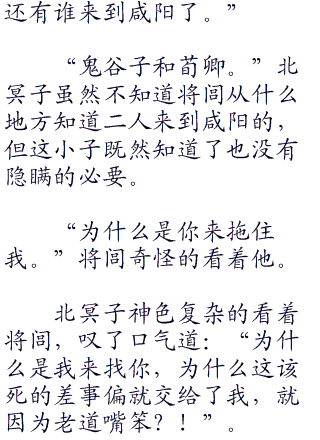 还有谁来到咸阳了。”
“鬼谷子和荀卿。”北
冥子虽然不知道将闾从什么
地方知道二人来到咸阳的，
但这小子既然知道了也没有
隐瞒的必要。
“为什么是你来拖住
我。”将闾奇怪的看着他。
北冥子神色复杂的看着
将闾，叹了口气道：“为什
么是我来找你，为什么这该
死的差事偏就交给了我，就
因为老道嘴笨？！”。